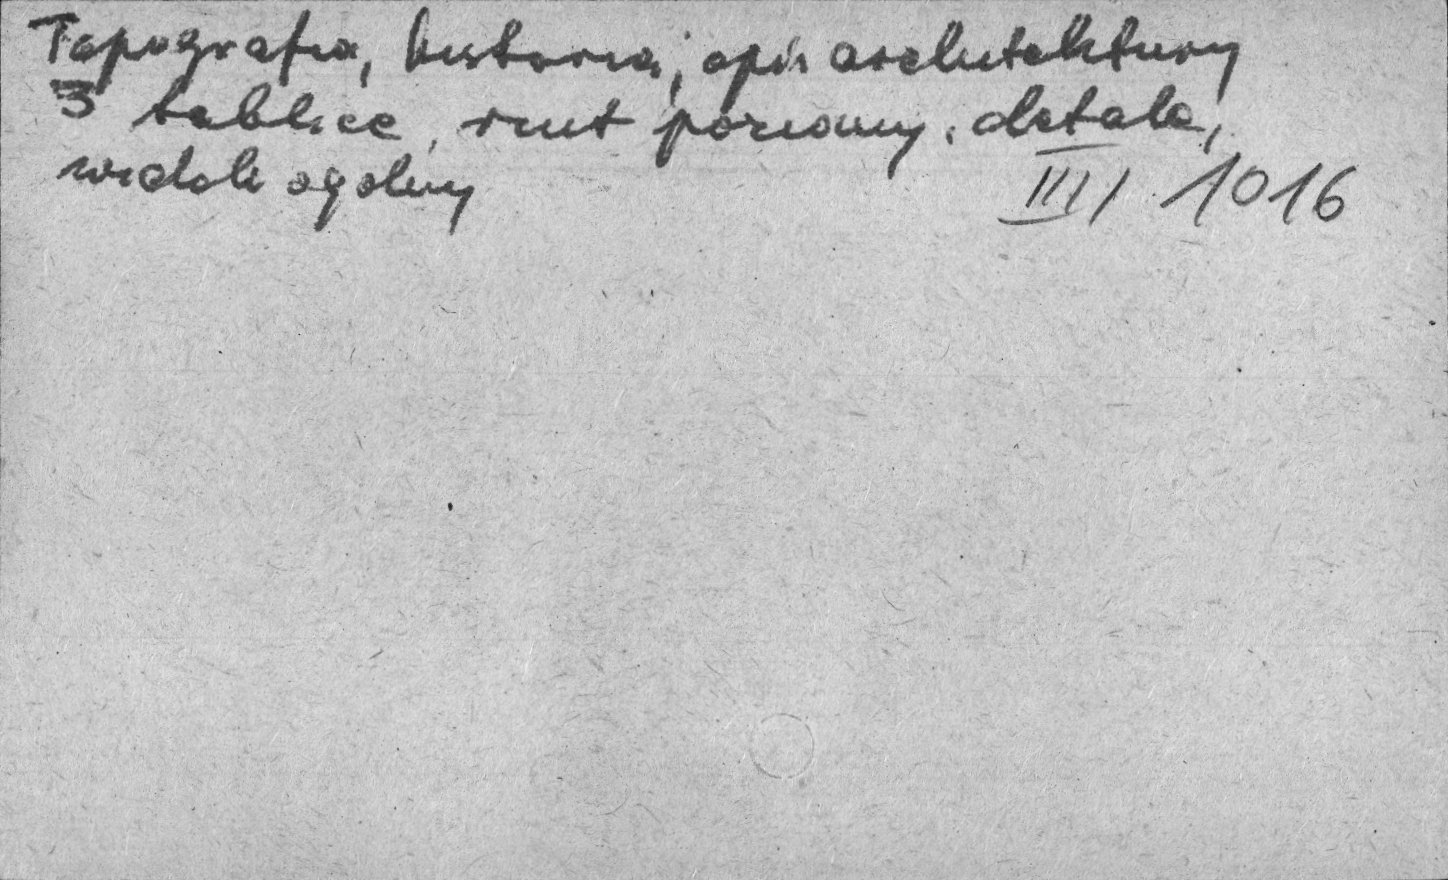 Topografia, historia, opis architektury
3 tablice, rzut poziomy, detale,
widok ogólny
III/ 1016